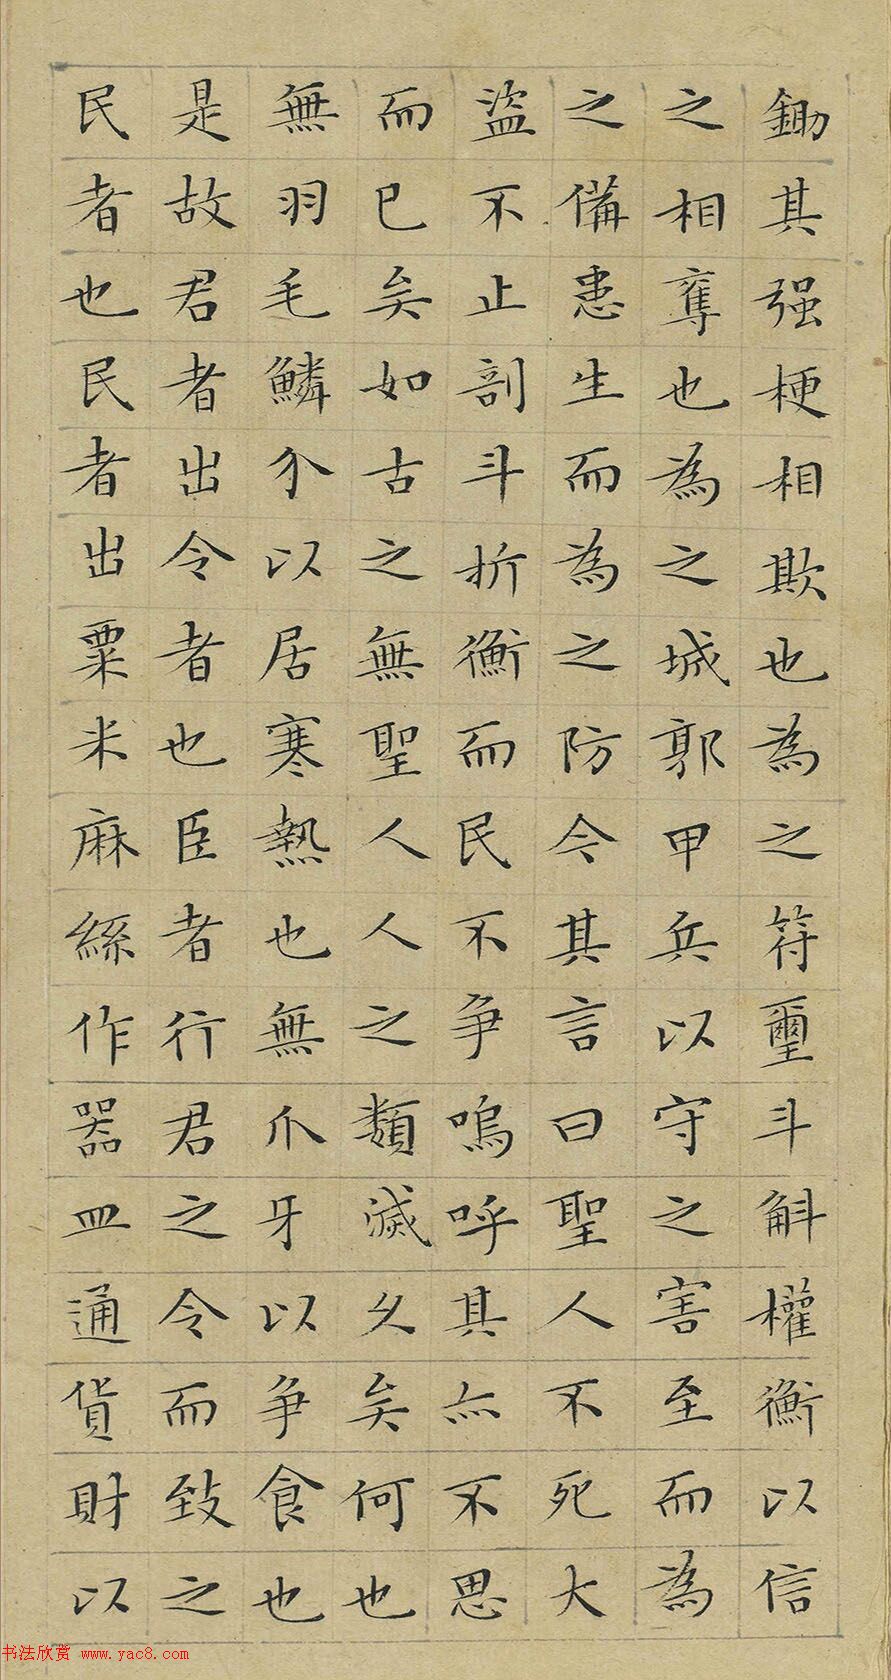 鋤其强梗相欺也為之符璽斗斛權衡以信
之相奪也為之城郭甲兵以守之害至而為
之備患生而為之防今其言曰聖人不死大
盜不止剖斗折衡而民不争嗚呼其亦不思
而已矣如古之無聖人人之類滅久矣何也
無羽毛鱗介以居寒熱也無爪牙以争食也
是故君者出令者也臣者行君之令而致之
民者也民者出粟米麻絲作器皿通貨財以
书法欣赏 www.yac8.com